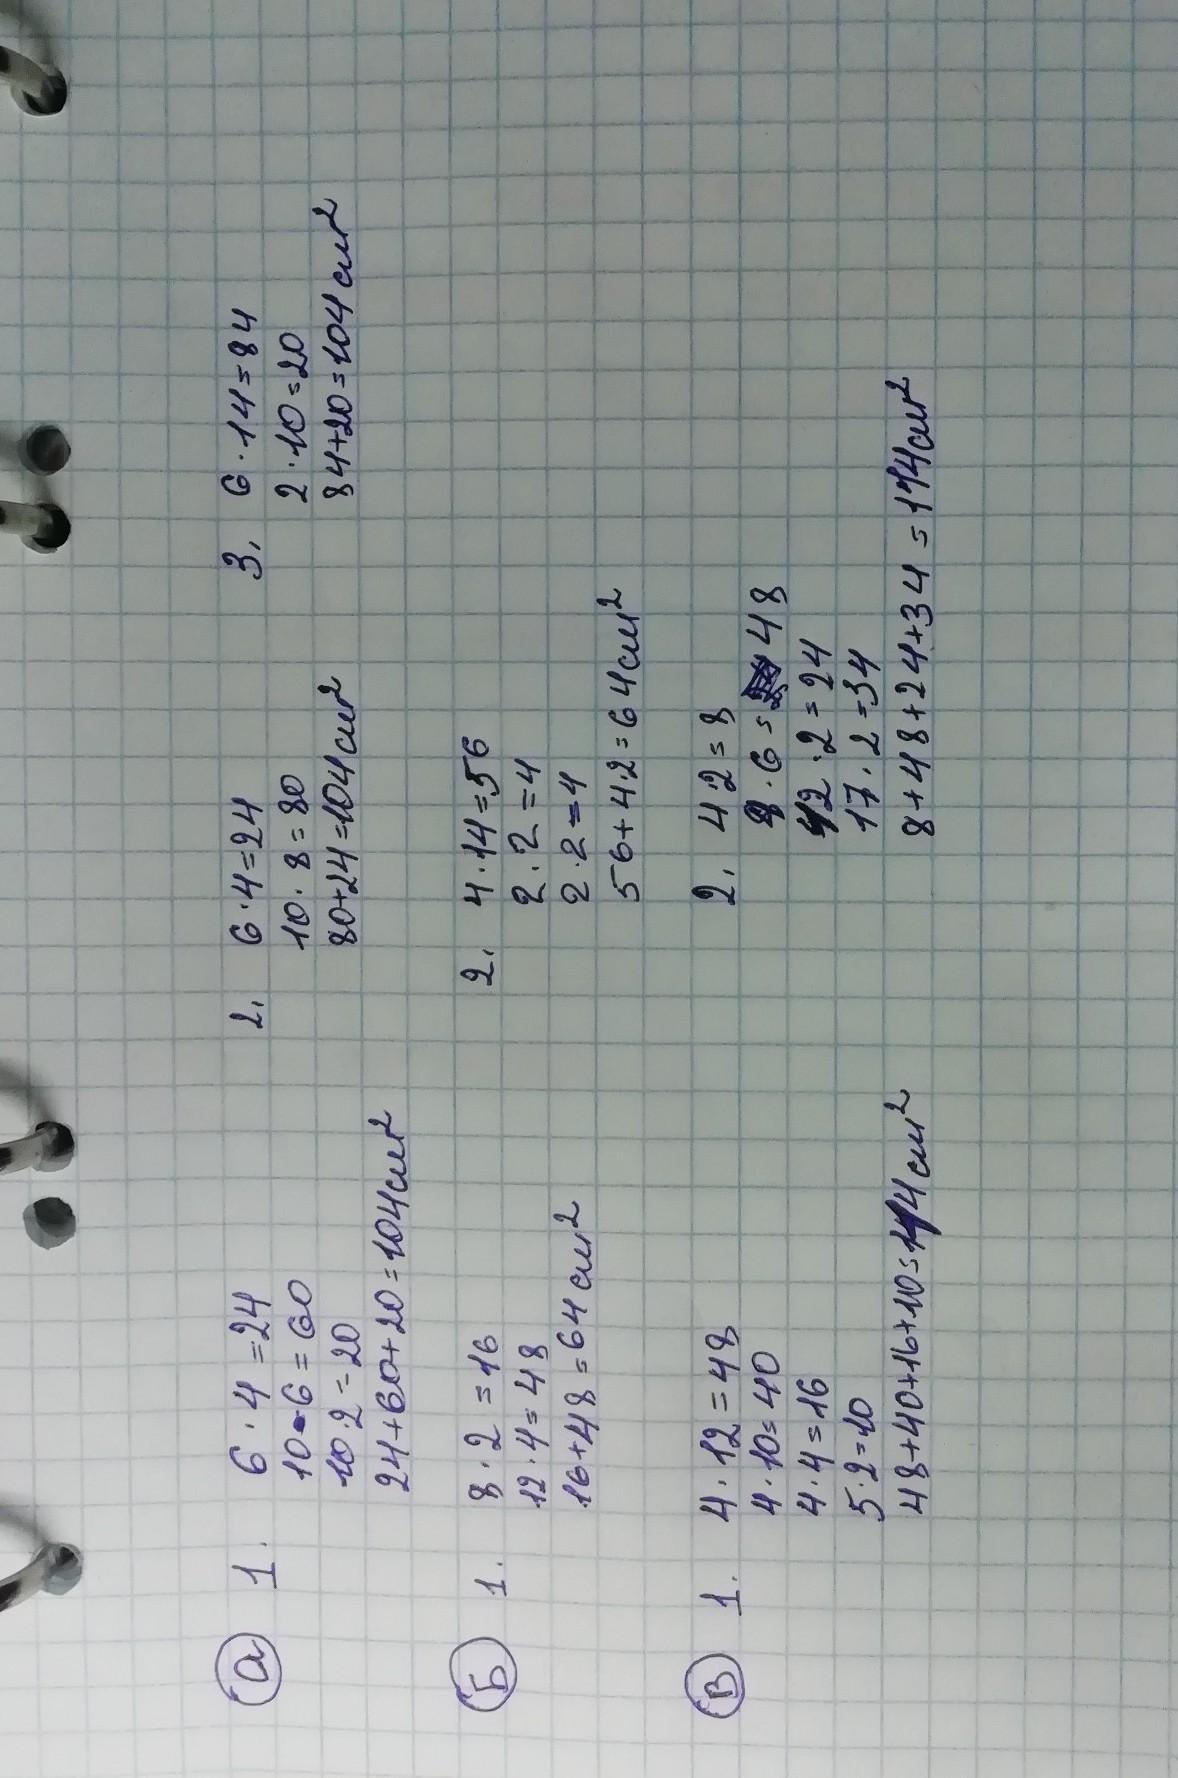 а 1. 6 · 4 = 24
10 · 6 = 60
10 · 2 = 20
24+60+20=104см²
2. 6 · 4=24
10 · 8=80
80+24=104см²
3. 6 · 14=84
2 · 10=20
84+20=104см²
Б 1. 8 · 2 = 16
12 · 4=48
16+48=64см²
2. 4 · 14=56
2 · 2=4
2 · 2=4
56+4·2=64см²
В 1. 4 · 12=48
4 · 10=40
4 · 4=16
5 · 2=10
48+40+16+10=114см²
2. 4·2=8
8 · 6= 48
12 · 2=24
17 · 2=34
8+48+24+34=114см²